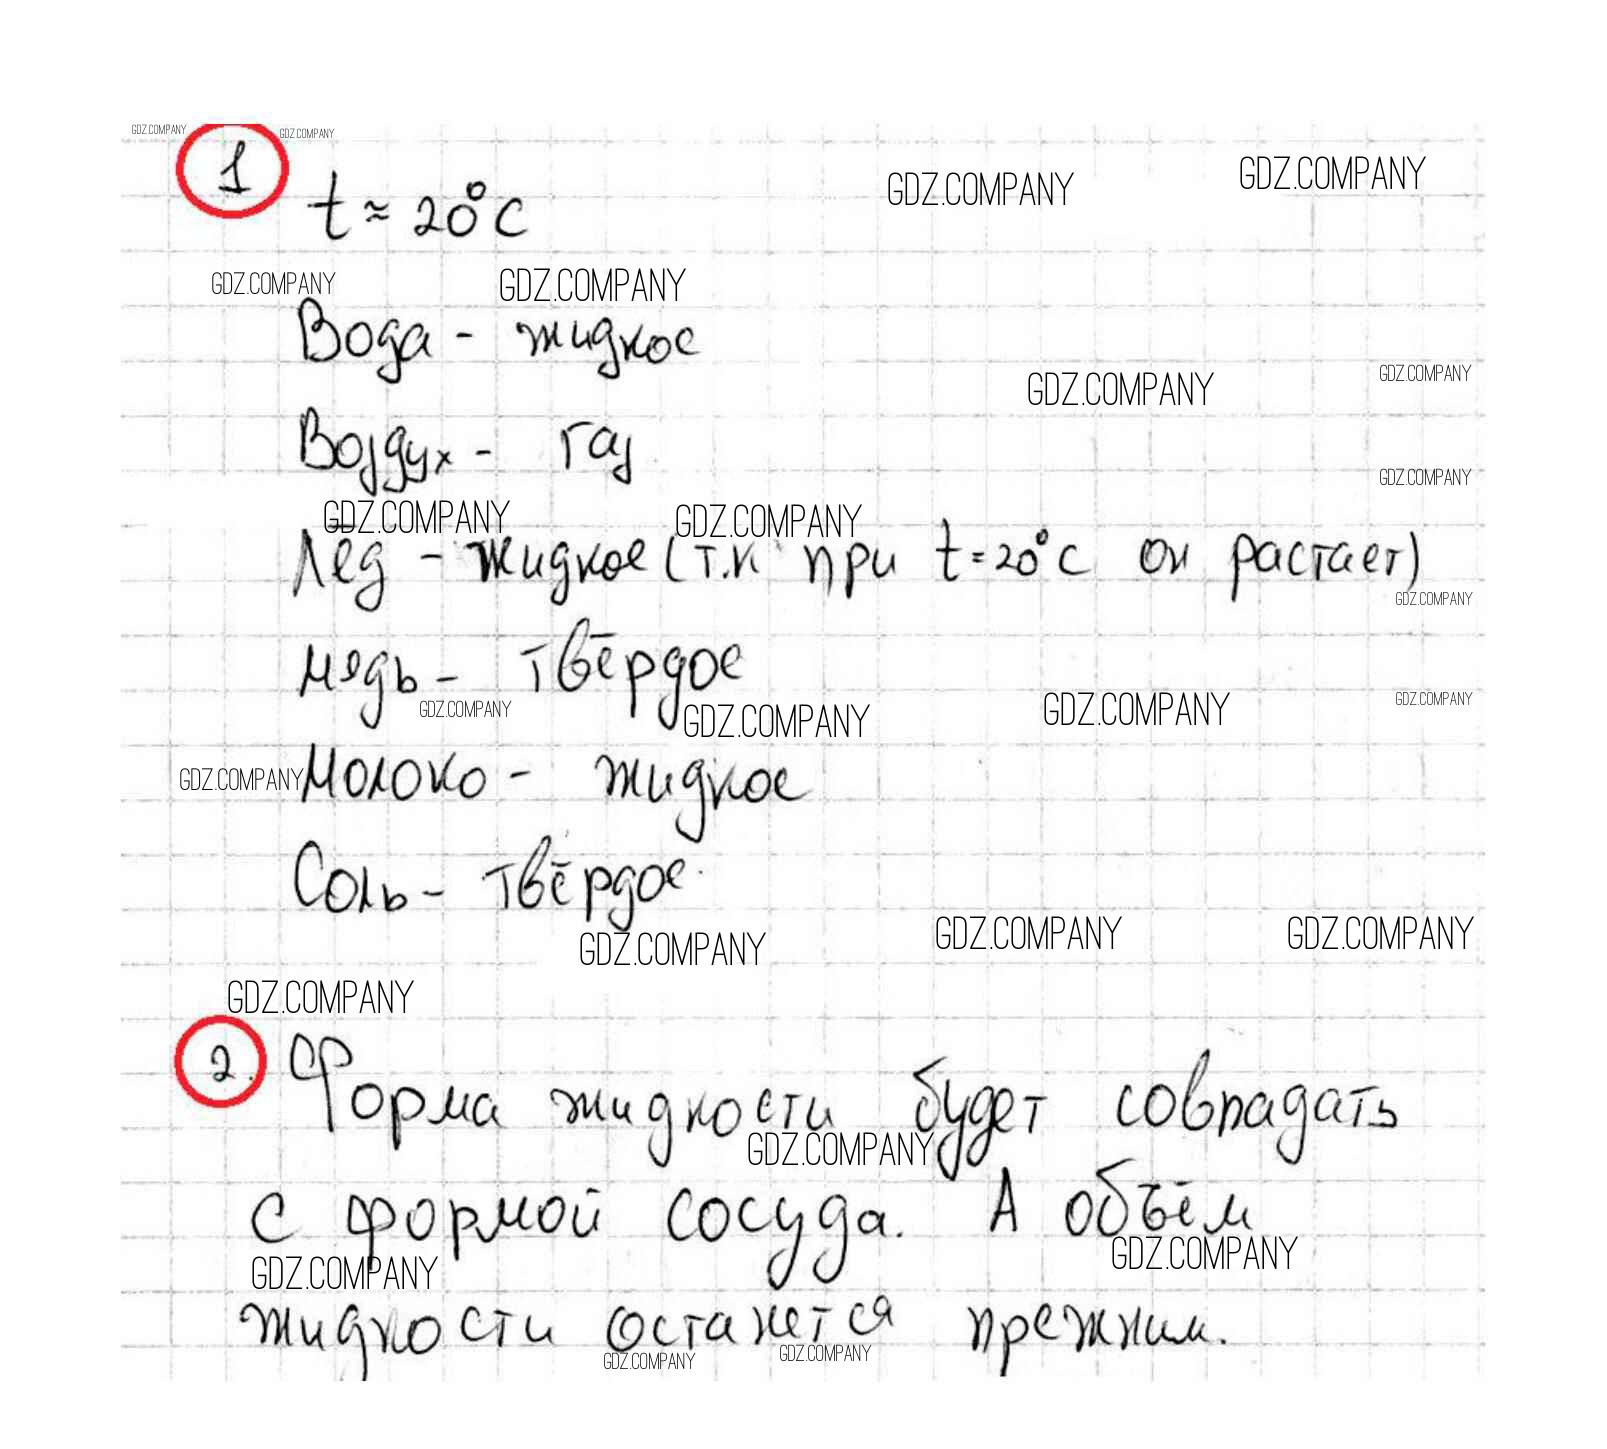 GDZ.COMPANY GDZ.COMPANY
1
t ≈ 20°C
GDZ.COMPANY GDZ.COMPANY
GDZ.COMPANY GDZ.COMPANY
Вода - жидкое
GDZ.COMPANY GDZ.COMPANY
Воздух - газ
GDZ.COMPANY
GDZ.COMPANY GDZ.COMPANY
Лёд - жидкое (т.к при t=20°C он растает)
GDZ.COMPANY
медь - твёрдое
GDZ.COMPANY GDZ.COMPANY GDZ.COMPANY GDZ.COMPANY
GDZ.COMPANY Молоко - жидкое
Соль - твёрдое.
GDZ.COMPANY GDZ.COMPANY GDZ.COMPANY
GDZ.COMPANY
2. Форма жидкости будет совпадать
GDZ.COMPANY
с формой сосуда. А объём
GDZ.COMPANY GDZ.COMPANY
жидкости останется прежним.
GDZ.COMPANY GDZ.COMPANY